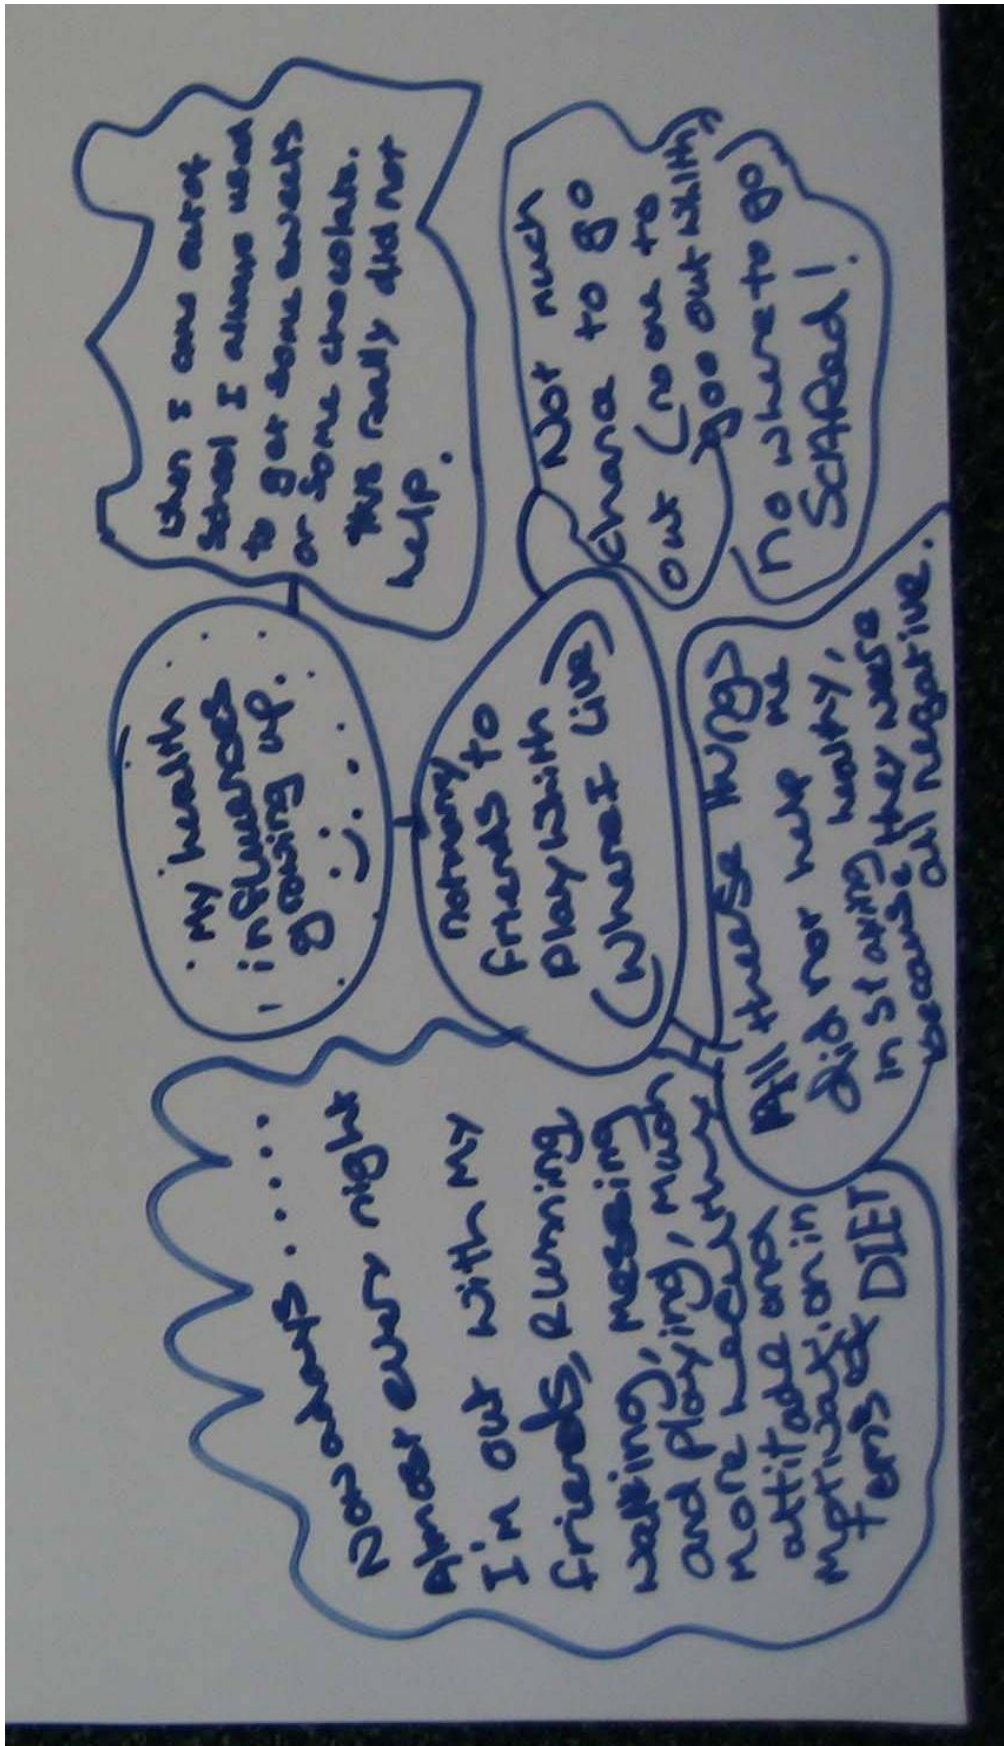 My health
influences
growing up.
When I come out of
School I always used
to get some sweets
or some chocolate.
this really did not
help.
not many
friends to
play with
(where I live)
Not much
chance to go
out (no one to
goo out whith,
no where to go)
SCARed!
All theese things
did not help me
in staying healthy,
because they were
all negative.
Nowadays.....
Almost every night
I'm out with my
friends, running
walking, messing
and playing, much
more healthy
attitade and
motivation in
terms of DIET